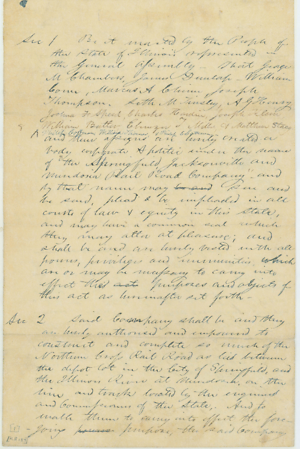 Sec 1 Be it enacted by the People of
the State of Illinois represented in
the General Assembly — That George
M Chambers, James Dunlap, William
Murray A Cheim Joseph
Thompson, Seth M Tinsley, A G Henry
William Butler
and their are hereby created a
body corporate & politic under the name
of the Springfield, Jacksonville and
Meredosia Rail Road Company, and
by that name may sue and
be sued, plead & be impleaded in all
courts of law & equity in this state,
and may have a common seal which
they may alter at pleasure; and
shall be and are hereby vested with all
powers, privileges and immunities which
are or may be necessary to carry into
effect the purposes and objects of
this act as hereinafter set forth.
Sec 2 Said Company shall be and they
are hereby authorized and empowered to
construct and complete so much of the
Northern Cross Rail Road as lies between
the depot lot in the City of Springfield, and
the Illinois River at Meredosia, on the
line, and located by the engineers
and Commissioners of the State. And to
enable them to carry into effect the fore-
going purpose, the said Company